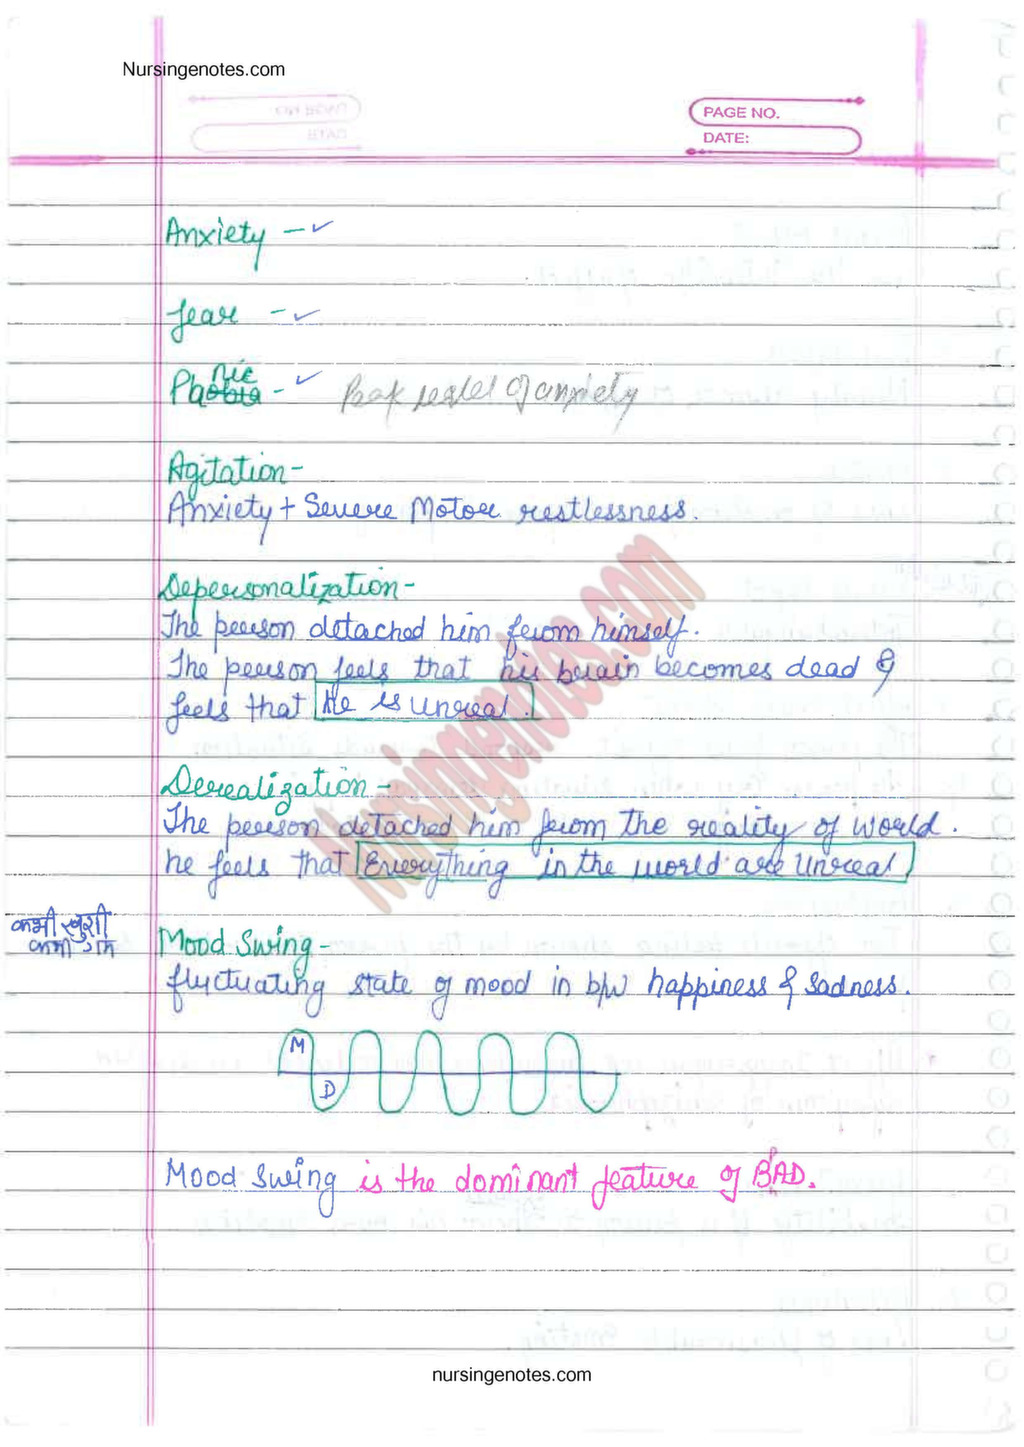 Nursingenotes.com
PAGE NO.
DATE:
Anxiety - ✓
fear - ✓
Panic - ✓ Peak level of anxiety
Agitation-
Anxiety + Severe Motor restlessness.
Depersonalization-
The person detached him from himself.
The person feels that his brain becomes dead &
feels that He is unreal.
Derealization-
The person detached him from the reality of world.
he feels that Everything in the world are Unreal
कभी खुशी
कभी गम
Mood Swing-
fluctuating state of mood in b/w happiness & sadness.
M
D
Mood Swing is the dominant feature of BAD.
Nursingenotes.com
nursingenotes.com